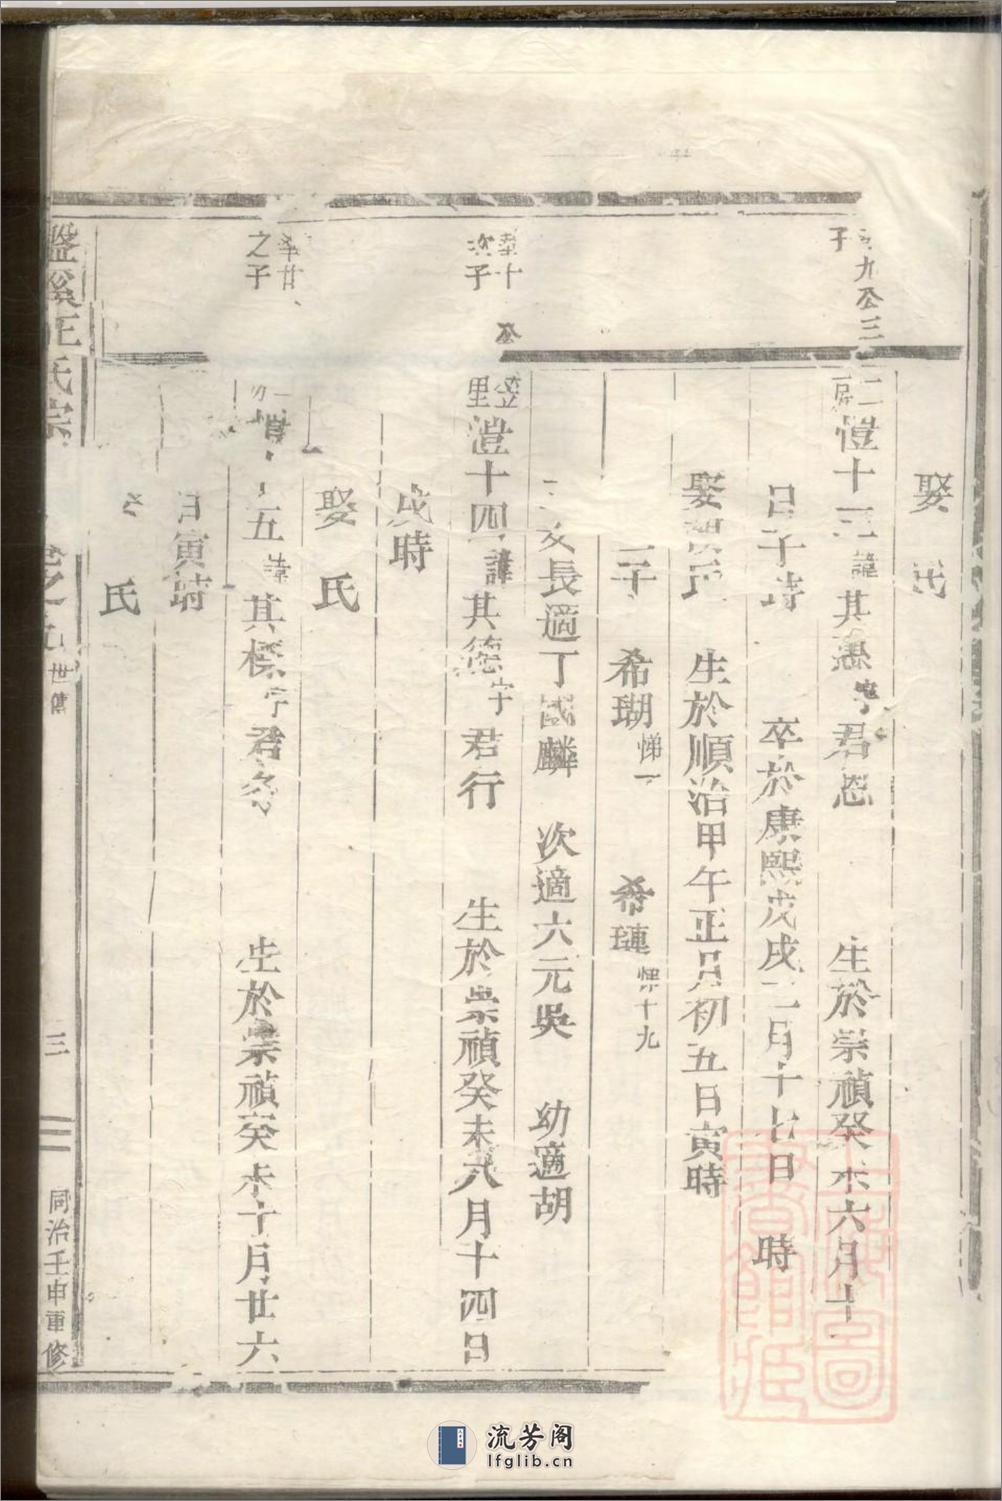 娶　氏
九公三子
二房　愷十三　諱其愚　字君　生於崇禎癸未六月十
日子時　卒於康熙戊戌二月十七日　時
娶　氏　生於順治甲午正月初五日寅時
二子　希瑚　悌一　希璉　悌十九
三女長適丁國麟　次適六元吳　幼適胡
十　公次子
里　澄十四　諱其德　字君行　生於崇禎癸未八月十四日
戌時
娶　氏
廿　之子
十五　諱其標　字君　生於崇禎癸未十月廿六
日寅時
氏
溪汪氏宗　卷之九　世傳　三　同治壬申重修
上海圖書館藏
流芳阁
lfglib.cn